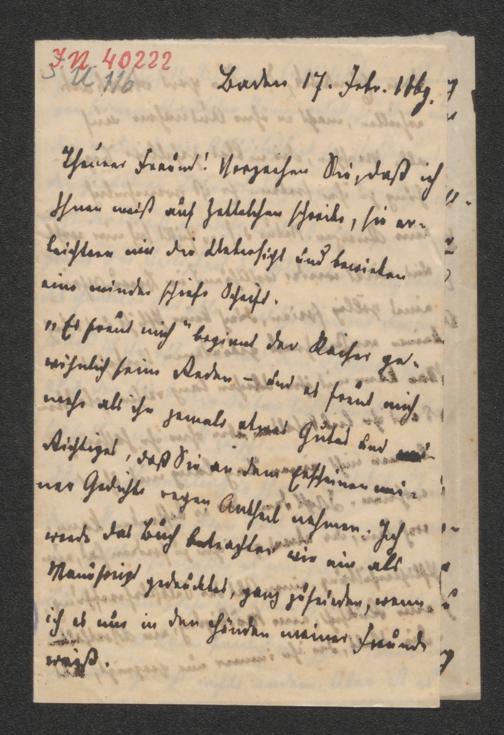 I.N. 40222
U 116
Baden 17. Febr. 1889.
Theurer Freund! Verzeihen Sie, daß ich
Ihnen meist auf Zettelchen schreibe, sie er-
leichtern mir die Uebersicht und bewirken
eine minder schiefe Schrift.
"Es freut mich" beginnt der Kaiser ge-
wöhnlich seine Reden – und es freut mich
mehr als ihn jemals etwas Gutes und
Richtiges, daß Sie an dem Erscheinen mei-
ner Gedichte regen Antheil nehmen. Ich
werde das Buch betrachten wie ein als
Manuscript gedrucktes, ganz zufrieden, wenn
ich es nur in den Händen meiner Freunde
weiß.